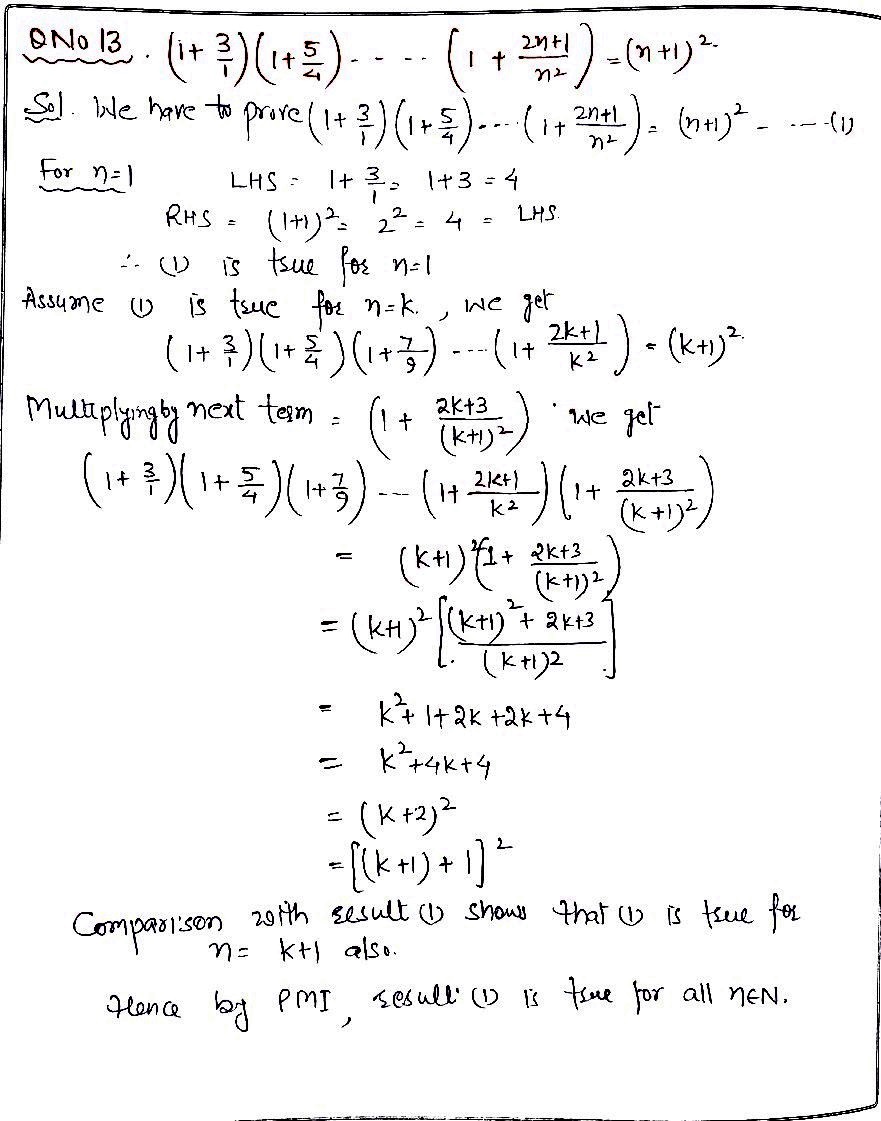 QNo 13. (1+ 3/1)(1+ 5/4)- - - - - (1 + 2n+1/n2) = (n+1)2.
Sol. We have to prove (1+ 3/1)(1+ 5/4)---- (1+ 2n+1/n2) = (n+1)2 - - --(1)
For n=1 LHS = 1+ 3/1 = 1+3 = 4
RHS = (1+1)2 = 22 = 4 = LHS.
∴ (1) is true for n=1
Assume (1) is true for n=k. , we get
(1+ 3/1)(1+ 5/4)(1+ 7/9) ---- (1+ 2k+1/k2) = (k+1)2.
Multiplying by next term = (1 + 2k+3/(k+1)2) we get
(1+ 3/1)(1+ 5/4)(1+ 7/9) --- (1+ 2k+1/k2)(1+ 2k+3/(k+1)2)
= (k+1)2(1+ 2k+3/(k+1)2)
= (k+1)2 [(k+1)2+ 2k+3/(k+1)2]
= k2+ 1+2k +2k+4
= k2+4k+4
= (k+2)2
= [(k+1) + 1]2
Comparison with result (1) shows that (1) is true for
n= k+1 also.
Hence by PMI, result (1) is true for all n∈N.